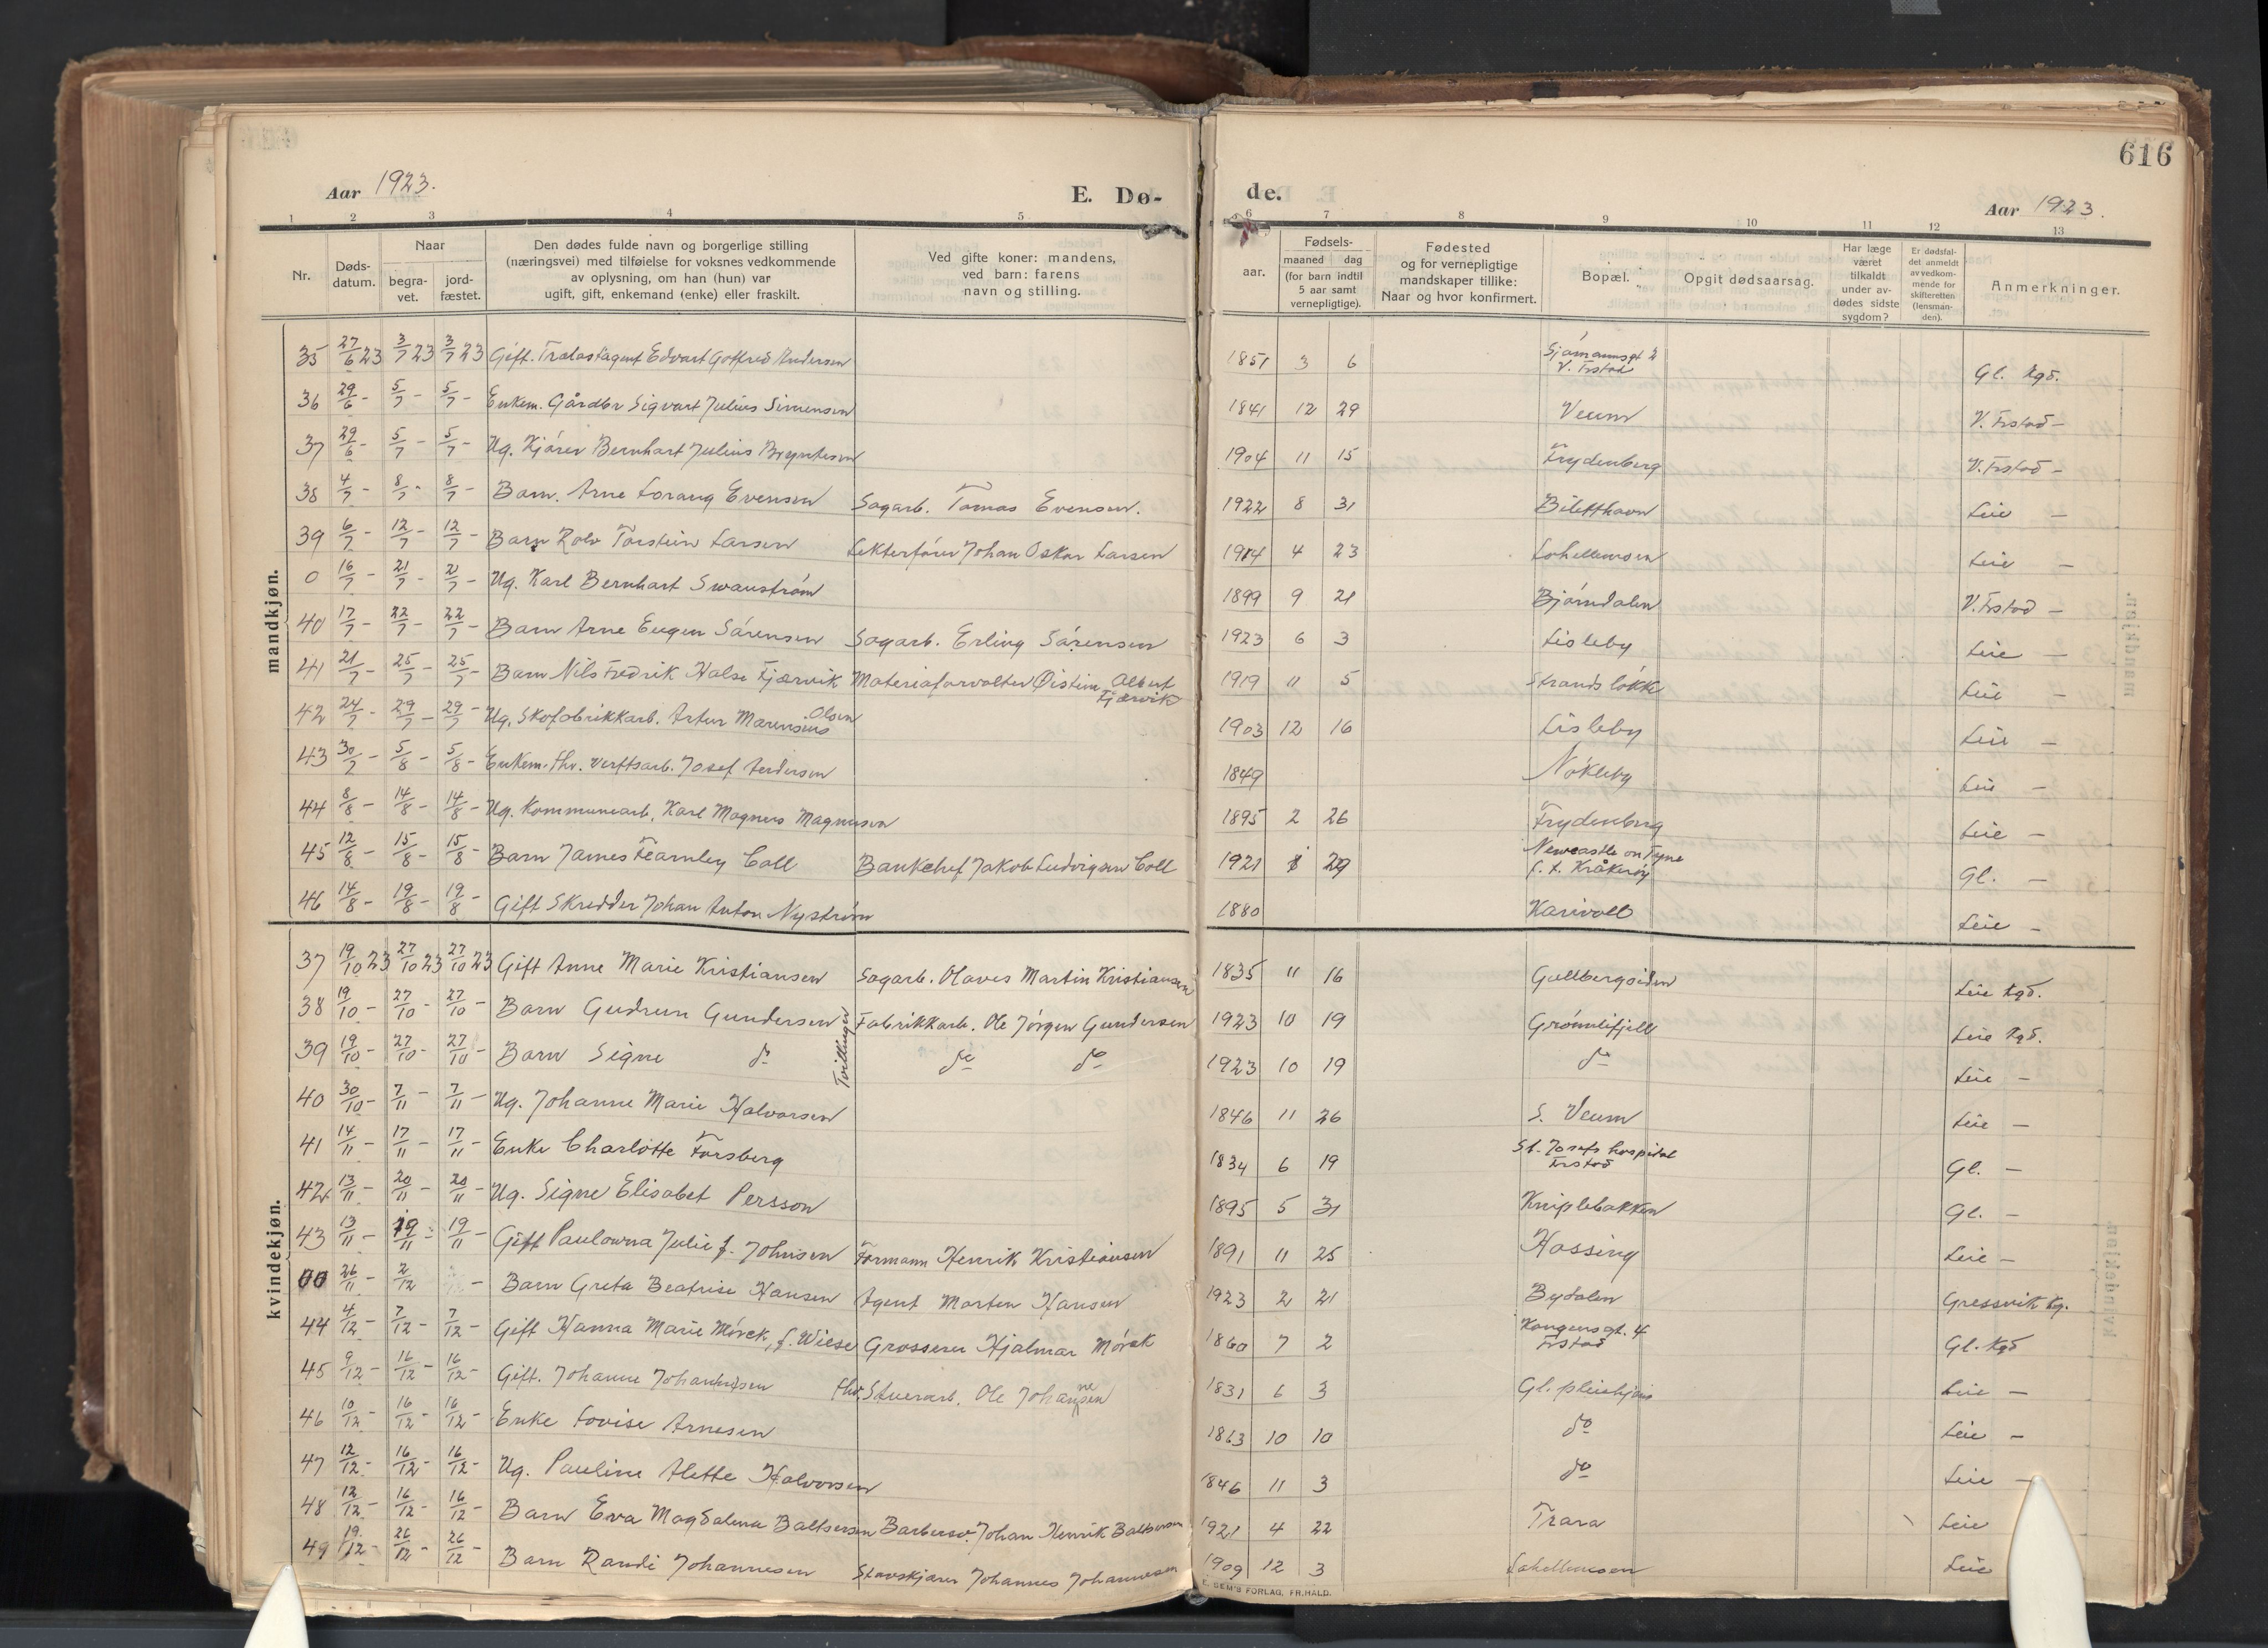 616
Aar 1923. E. Dø- de. Aar 1923.
1 2 3 4 5 6 7 8 9 10 11 12 13
Nr. Døds-datum. Naar begra-vet. jord-fæstet. Den dødes fulde navn og borgerlige stilling (næringsvei) med tilføielse for voksnes vedkommende av oplysning, om han (hun) var ugift, gift, enkemand (enke) eller fraskilt. Ved gifte koner: mandens, ved barn: farens navn og stilling. aar. Fødsels- maaned dag (for barn indtil 5 aar samt vernepligtige). Fødested og for vernepligtige mandskaper tillike: Naar og hvor konfirmert. Bopæl. Opgit dødsaarsag. Har læge været tilkaldt under av-dødes sidste sygdom? Er dødsfal-det anmeldt av vedkom-mende for skifteretten (lensman-den). Anmerkninger.
mandkjøn.
35 27/6 23 3/7 23 3/7 23 Gift. Trælastagent Edvart Gotfred Andersen 1851 3 6 Sjömannsgt 2 V. Frstad Gl. kgd.
36 29/6 - 5/7 - 5/7 - Enkem. Gårdbr Sigvart Julius Simensen 1841 12 29 Veum V. Frstad -
37 29/6 - 5/7 - 5/7 - Ug. Kjörer Bernhart Julius Bryntesen 1904 11 15 Frydenberg V. Frstad -
38 4/7 - 8/7 - 8/7 - Barn. Arne Lorang Evensen Sagarb. Tomas Evensen. 1922 8 31 Biletthavn Leie -
39 6/7 - 12/7 - 12/7 - Barn Rolv Torstein Larsen Lekterförer Johan Oskar Larsen 1914 4 23 Lahellemoen Leie -
0 16/7 - 21/7 - 21/7 - Ug. Karl Bernhart Swanström 1899 9 21 Björndalen V. Frstad -
40 17/7 - 22/7 - 22/7 - Barn Arne Eugen Sörensen Sagarb. Erling Sörensen 1923 6 3 Lisleby Leie -
41 21/7 - 25/7 - 25/7 - Barn Nils Fredrik Halse Fjærvik Materialforvalter Øistein Albert Fjærvik 1919 11 5 Strandslökk Leie -
42 24/7 - 29/7 - 29/7 - Ug. Skofabrikkarb. Artur Marensius Olsen 1903 12 16 Lisleby Leie -
43 30/7 - 5/8 - 5/8 - Enkem. fhv. verftsarb. Josef Andersen 1849 Nökleby Leie -
44 8/8 - 14/8 - 14/8 - Ug. Kommunearb. Karl Magnus Magnusen 1895 2 26 Frydenberg Leie -
45 12/8 - 15/8 - 15/8 - Barn James Fearnley Coll Bankchef Jakob Ludvigsen Coll 1921 8 29 Newcastle on Tyne f. t. Kråkeröy Gl. -
46 14/8 - 19/8 - 19/8 - Gift Skredder Johan Anton Nyström 1880 Karivold Leie -
kvindekjøn.
37 19/10 23 27/10 23 27/10 23 Gift Anne Marie Kristiansen Sagarb. Olaves Martin Kristiansen 1835 11 16 Gullbergsiden Leie kgd.
38 19/10 - 27/10 - 27/10 - Barn Gudrun Gundersen Tvillinger Fabrikkarb. Ole Jörgen Gundersen 1923 10 19 Grönnlifjell Leie kgd.
39 19/10 - 27/10 - 27/10 - Barn Signe do do do 1923 10 19 do Leie -
40 30/10 - 7/11 - 7/11 - Ug. Johanne Marie Halvorsen 1846 11 26 S. Veum Leie -
41 14/11 - 17/11 - 17/11 - Enke Charlotte Forsberg 1834 6 19 St. Josefs hospital Frstad Gl. -
42 13/11 - 20/11 - 20/11 - Ug. Signe Elisabet Persson 1895 5 31 Kniplebakken Gl. -
43 13/11 - 19/11 - 19/11 - Gift Paulowna Julie f. Johnsen Formann Henrik Kristiansen 1891 11 25 Hassing Leie -
00 26/11 - 2/12 - Barn Greta Beatrise Hansen Agent Marten Hansen 1923 2 21 Bydalen Gressvik kg.
44 4/12 - 7/12 - 7/12 - Gift Hanna Marie Mörck, f. Wiese Grosserer Hjalmar Mörck 1860 7 2 Kongensgt. 4 Frstad Gl. Kgd
45 9/12 - 16/12 - 16/12 - Gift. Johanne Johannesen fhv. Stuerarb. Ole Johannesen 1831 6 3 Gl. pleiehjem Leie -
46 10/12 - 16/12 - 16/12 - Enke Lovise Arnesen 1863 10 10 do Leie -
47 12/12 - 16/12 - 16/12 - Ug. Pauline Alette Halvorsen 1846 11 3 do Leie -
48 12/12 - 16/12 - 16/12 - Barn Eva Magdalena Baltsersen Barbersv. Johan Henrik Baltsersen 1921 4 22 Trara Leie
49 19/12 - 26/12 - 26/12 - Barn Randi Johannesen Stavskjærer Johannes Johannesen 1909 12 3 Lahellemoen Leie
E. SEM'S FORLAG, FR.HALD.